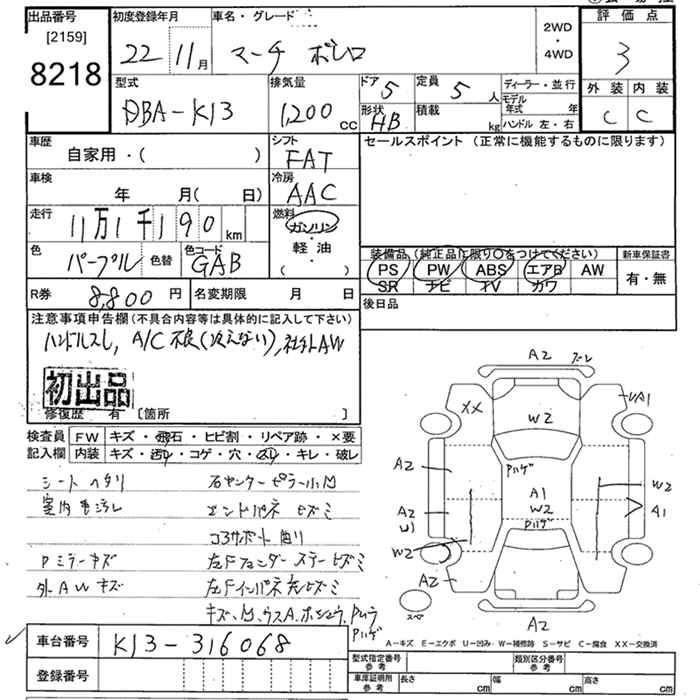 出品番号 初度登録年月 車名・グレード 2WD・4WD 評価点
[2159]
8218 22 11月 マーチ ボレロ 3
型式 排気量 ドア 5 定員 5人 ディーラー・並行 外装 内装
DBA-K13 1,200cc 形状 HB 積載 kg モデル年式 年 C C
ハンドル 左・右
車歴 シフト セールスポイント (正常に機能するものに限ります)
自家用・( ) FAT
車検 冷房
年 月( 日) AAC
走行 燃料
11万1千190km ガソリン・軽油・( )
色 パープル 色替 色コード GAB 装備品(純正品に限り○をつけてください) 新車保証書
PS PW ABS エアB AW 有・無
SR ナビ TV カワ
R券 8,800円 名変期限 月 日 後日品
注意事項申告欄(不具合内容等は具体的に記入して下さい)
ハンドルスレ, A/C不良(冷えない), 社外AW
初出品
修復歴 有 [箇所 ]
検査員 FW キズ・飛石・ヒビ割・リペア跡・×要
記入欄 内装 キズ・汚レ・コゲ・穴・スレ・キレ・破レ
シートヘタリ 右センターピラー小凹
室内毛汚レ エンドパネヒズミ
コアサポート曲り
Pミラーキズ 左Fフェンダーステーヒズミ
外AWキズ 左Fインパネ先ヒズミ
A2
XX W2 A1
Pハゲ
A2 A1 W2
W2 A1
A2 Pハゲ
W2
A2
A2
A-キズ E-エクボ U-凹み W-補修跡 S-サビ C-腐食 XX-交換済
車台番号 K13-316068 型式指定番号 参考 類別区分番号 参考
登録番号 車庫証明用 参考 長さ cm 幅 cm 高さ cm